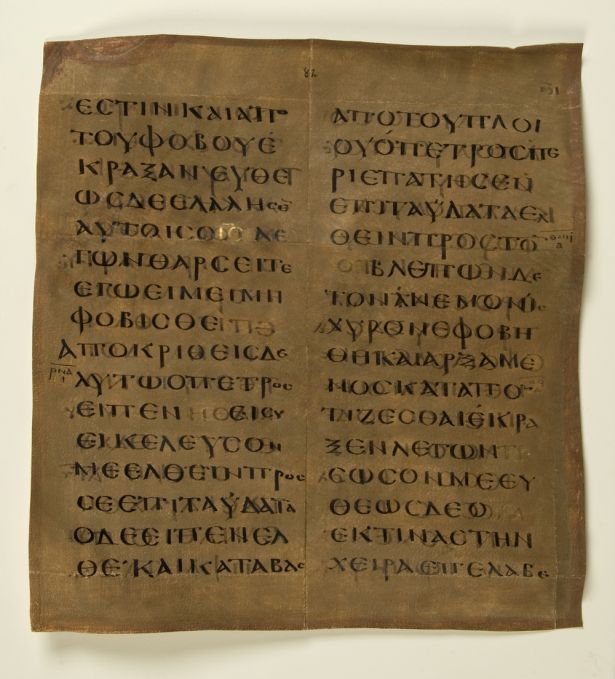 ΕϹΤΙΝΚΑΙΑΠΟ
ΤΟΥΦΟΒΟΥΕ
ΚΡΑΞΑΝΕΥΘΕ
ΩϹΔΕΕΛΑΛΗϹΕ
ΑΥΤΟΙϹ ΛΕ
ΓΩΝΘΑΡϹΕΙΤΕ
ΕΓΩΕΙΜΕΙΜΗ
ΦΟΒΙϹΘΕ
ΑΠΟΚΡΙΘΕΙϹΔΕ
ΑΥΤΩΟΠΕΤΡΟϹ
ΕΙΠΕΝ ΕΙϹΥ
ΕΙΚΕΛΕΥϹΟΝ
ΜΕΕΛΘΕΙΝΠΡΟϹ
ϹΕΕΠΙΤΑΫΔΑΤΑ
ΟΔΕΕΙΠΕΝΕΛ
ΘΕΚΑΙΚΑΤΑΒΑϹ
ΑΠΟΤΟΥΠΛΟΙ
ΟΥΟΠΕΤΡΟϹΠΕ
ΡΙΕΠΑΤΗϹΕΝ
ΕΠΙΤΑΫΔΑΤΑΕΛ
ΘΕΙΝΠΡΟϹΤΟ
ΒΛΕΠΩΝΔΕ
ΤΟΝΑΝΕΜΟΝΙ
ΧΥΡΟΝΕΦΟΒΗ
ΘΗΚΑΙΑΡΞΑΜΕ
ΝΟϹΚΑΤΑΠΟ
ΤΙΖΕϹΘΑΙΕΚΡΑ
ΞΕΝΛΕΓΩΝ
ϹΩϹΟΝΜΕΕΥ
ΘΕΩϹΔΕΟ
ΕΚΤΙΝΑϹΤΗΝ
ΧΕΙΡΑΕΠΕΛΑΒΕ